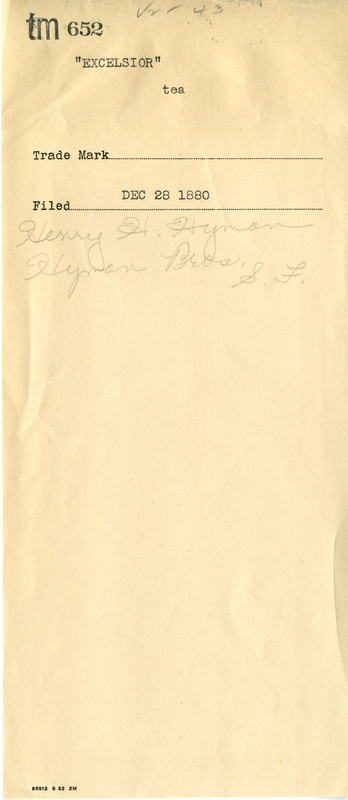 43
tm 652
"EXCELSIOR"
tea
Trade Mark
DEC 28 1880
Filed
Henry H. Hyman
Hyman Bros.
S. F.
95912 6 32 2M